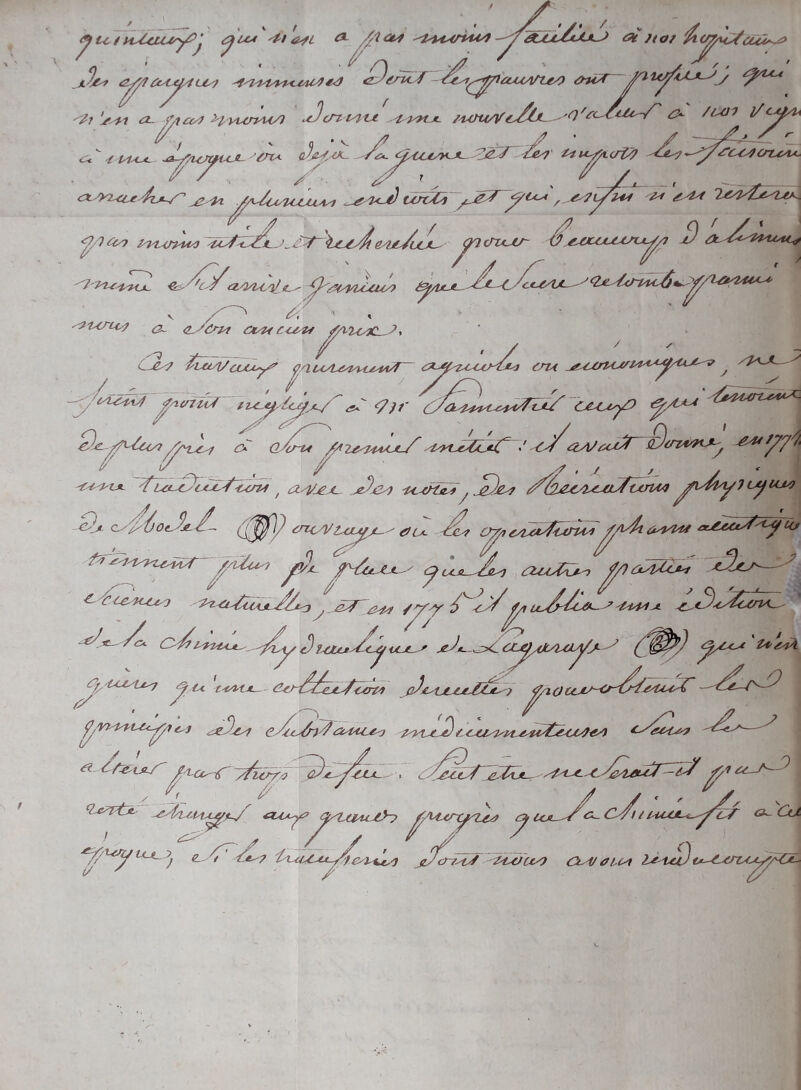 quintaux; qui n'en a pas moins facilité à nos hopitaux
des épargnes immenses dont les pauvres ont profité; qui
n'en a pas moins donné une nouvelle valeur à nos vign
à une époque où déjà la guerre et les impots les faisoien
arracher en plusieurs endroits, et qui, enfin n'en restera
pas moins utile et recherchée pour beaucoup d'alimens,
meme s'il arrive jamais que le Sucre retombe parmi
nous à son ancien prix.
Ces travaux purement agricoles ou économiques, ne
firent point négliger à Mr Parmentier ceux qui tenoient
de plus près à son premier métier: il avait donné, en 177
une traduction, avec des notes, des Récréations physiques
de Model ouvrage où les operations pharmaceutiqu
tiennent plus de place que les autres parties des
Sciences naturelles, et en 1775 il publia une édition
de la chimie hydraulique de Lagaraye qui n'est
guères qu'une collection de recettes pour obtenir les
principes des Substances médicamenteuses Sans les
altérer par trop de feu. Peut etre ne Serait-il pas
resté étranger aux grands progrès que la chimie fit à ce
époque, Si les tracasseries dont nous avons rendu compte